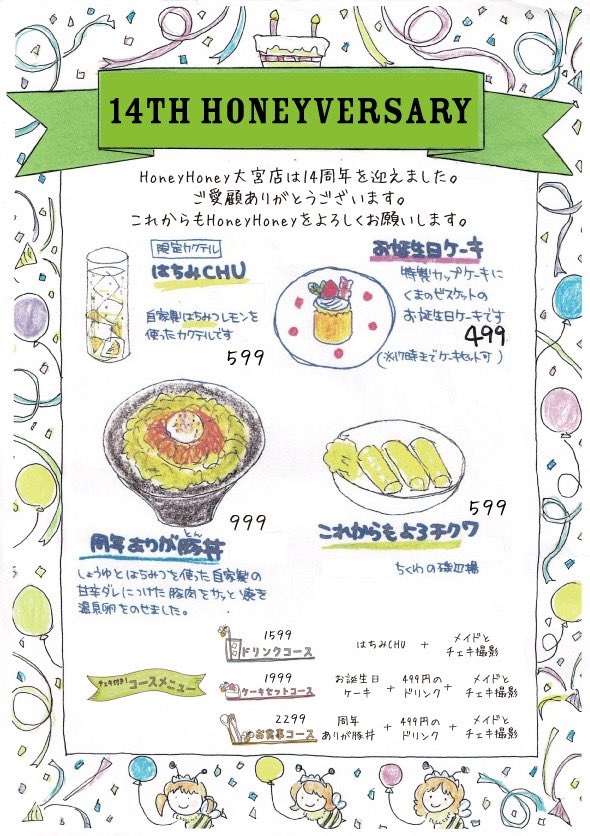 14TH HONEYVERSARY
HoneyHoney大宮店は14周年を迎えました。
ご愛顧ありがとうございます。
これからもHoneyHoneyをよろしくお願いします。
限定カクテル
はちみCHU
自家製はちみつレモンを
使ったカクテルです
599
お誕生日ケーキ
特製カップケーキに
くまのビスケットの
お誕生日ケーキです
499
(※17時までケーキセット可)
999
周年ありが豚丼
とん
しょうゆとはちみつを使った自家製の
甘辛ダレにつけた豚肉をサッと焼き
温泉卵をのせました。
599
これからもよろチクワ
ちくわの磯辺揚
チェキ付き!コースメニュー
1599
ドリンクコース
はちみCHU + メイドと
チェキ撮影
1999
ケーキセットコース
お誕生日
ケーキ + 499円の
ドリンク + メイドと
チェキ撮影
2299
お食事コース
周年
ありが豚丼 + 499円の
ドリンク + メイドと
チェキ撮影